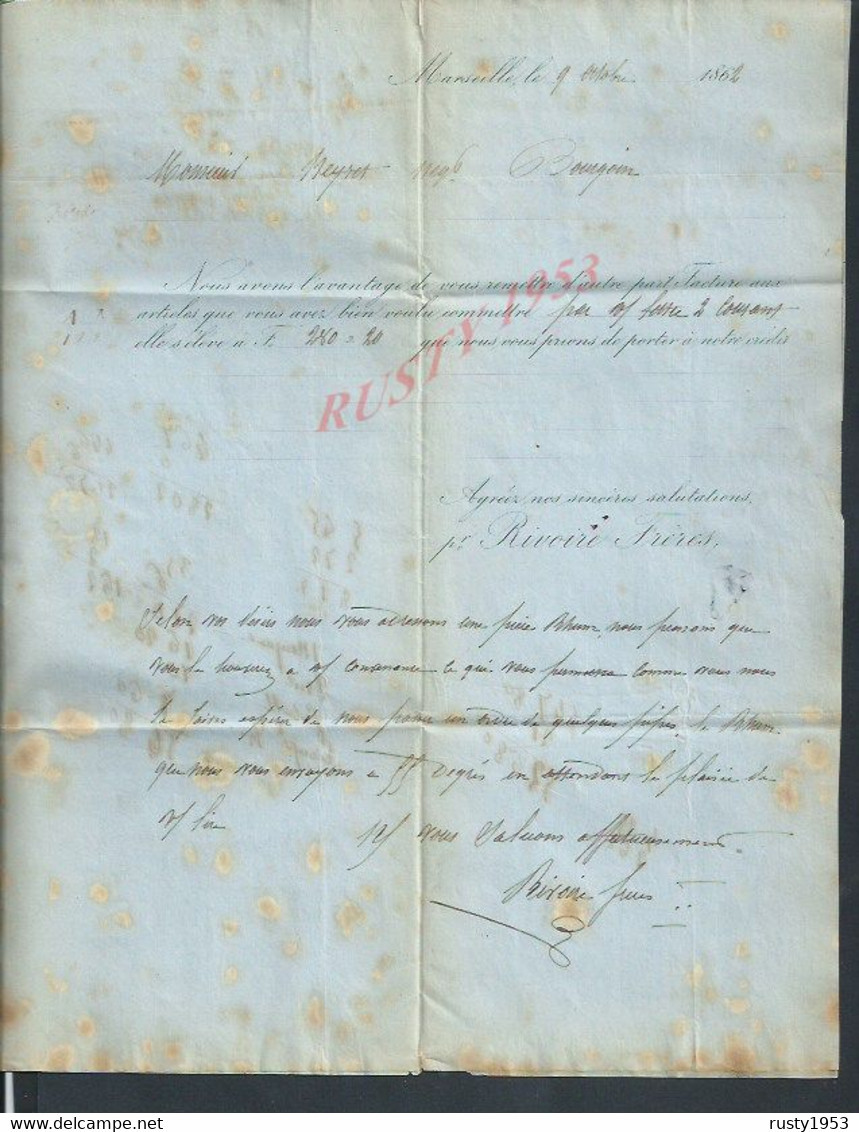 Marseille, le 9 octobre 1862
Monsieur Beyret Negt Bourgoin
Nous avons l'avantage de vous remettre d'autre part Facture aux
articles que vous avez bien voulu commettre par v/ lettre 2 Courant
elle s'élève à F. 280 = 20 que nous vous prions de porter à notre crédit
RUSTY 1953
Agréez nos sincères salutations,
pr Rivoire Frères,
Selon vos désirs nous vous adressons une pièce Rhum, nous pensons que
vous le trouverez a v/ convenance ce qui vous permettra comme vous nous
le faites espérer de nous passer un ordre de quelques pipes, le Rhum
que nous vous envoyons a 55 degrés en attendant le plaisir de
v/ lire
N/ vous Saluons affectueusement
Rivoire frères
rusty1953